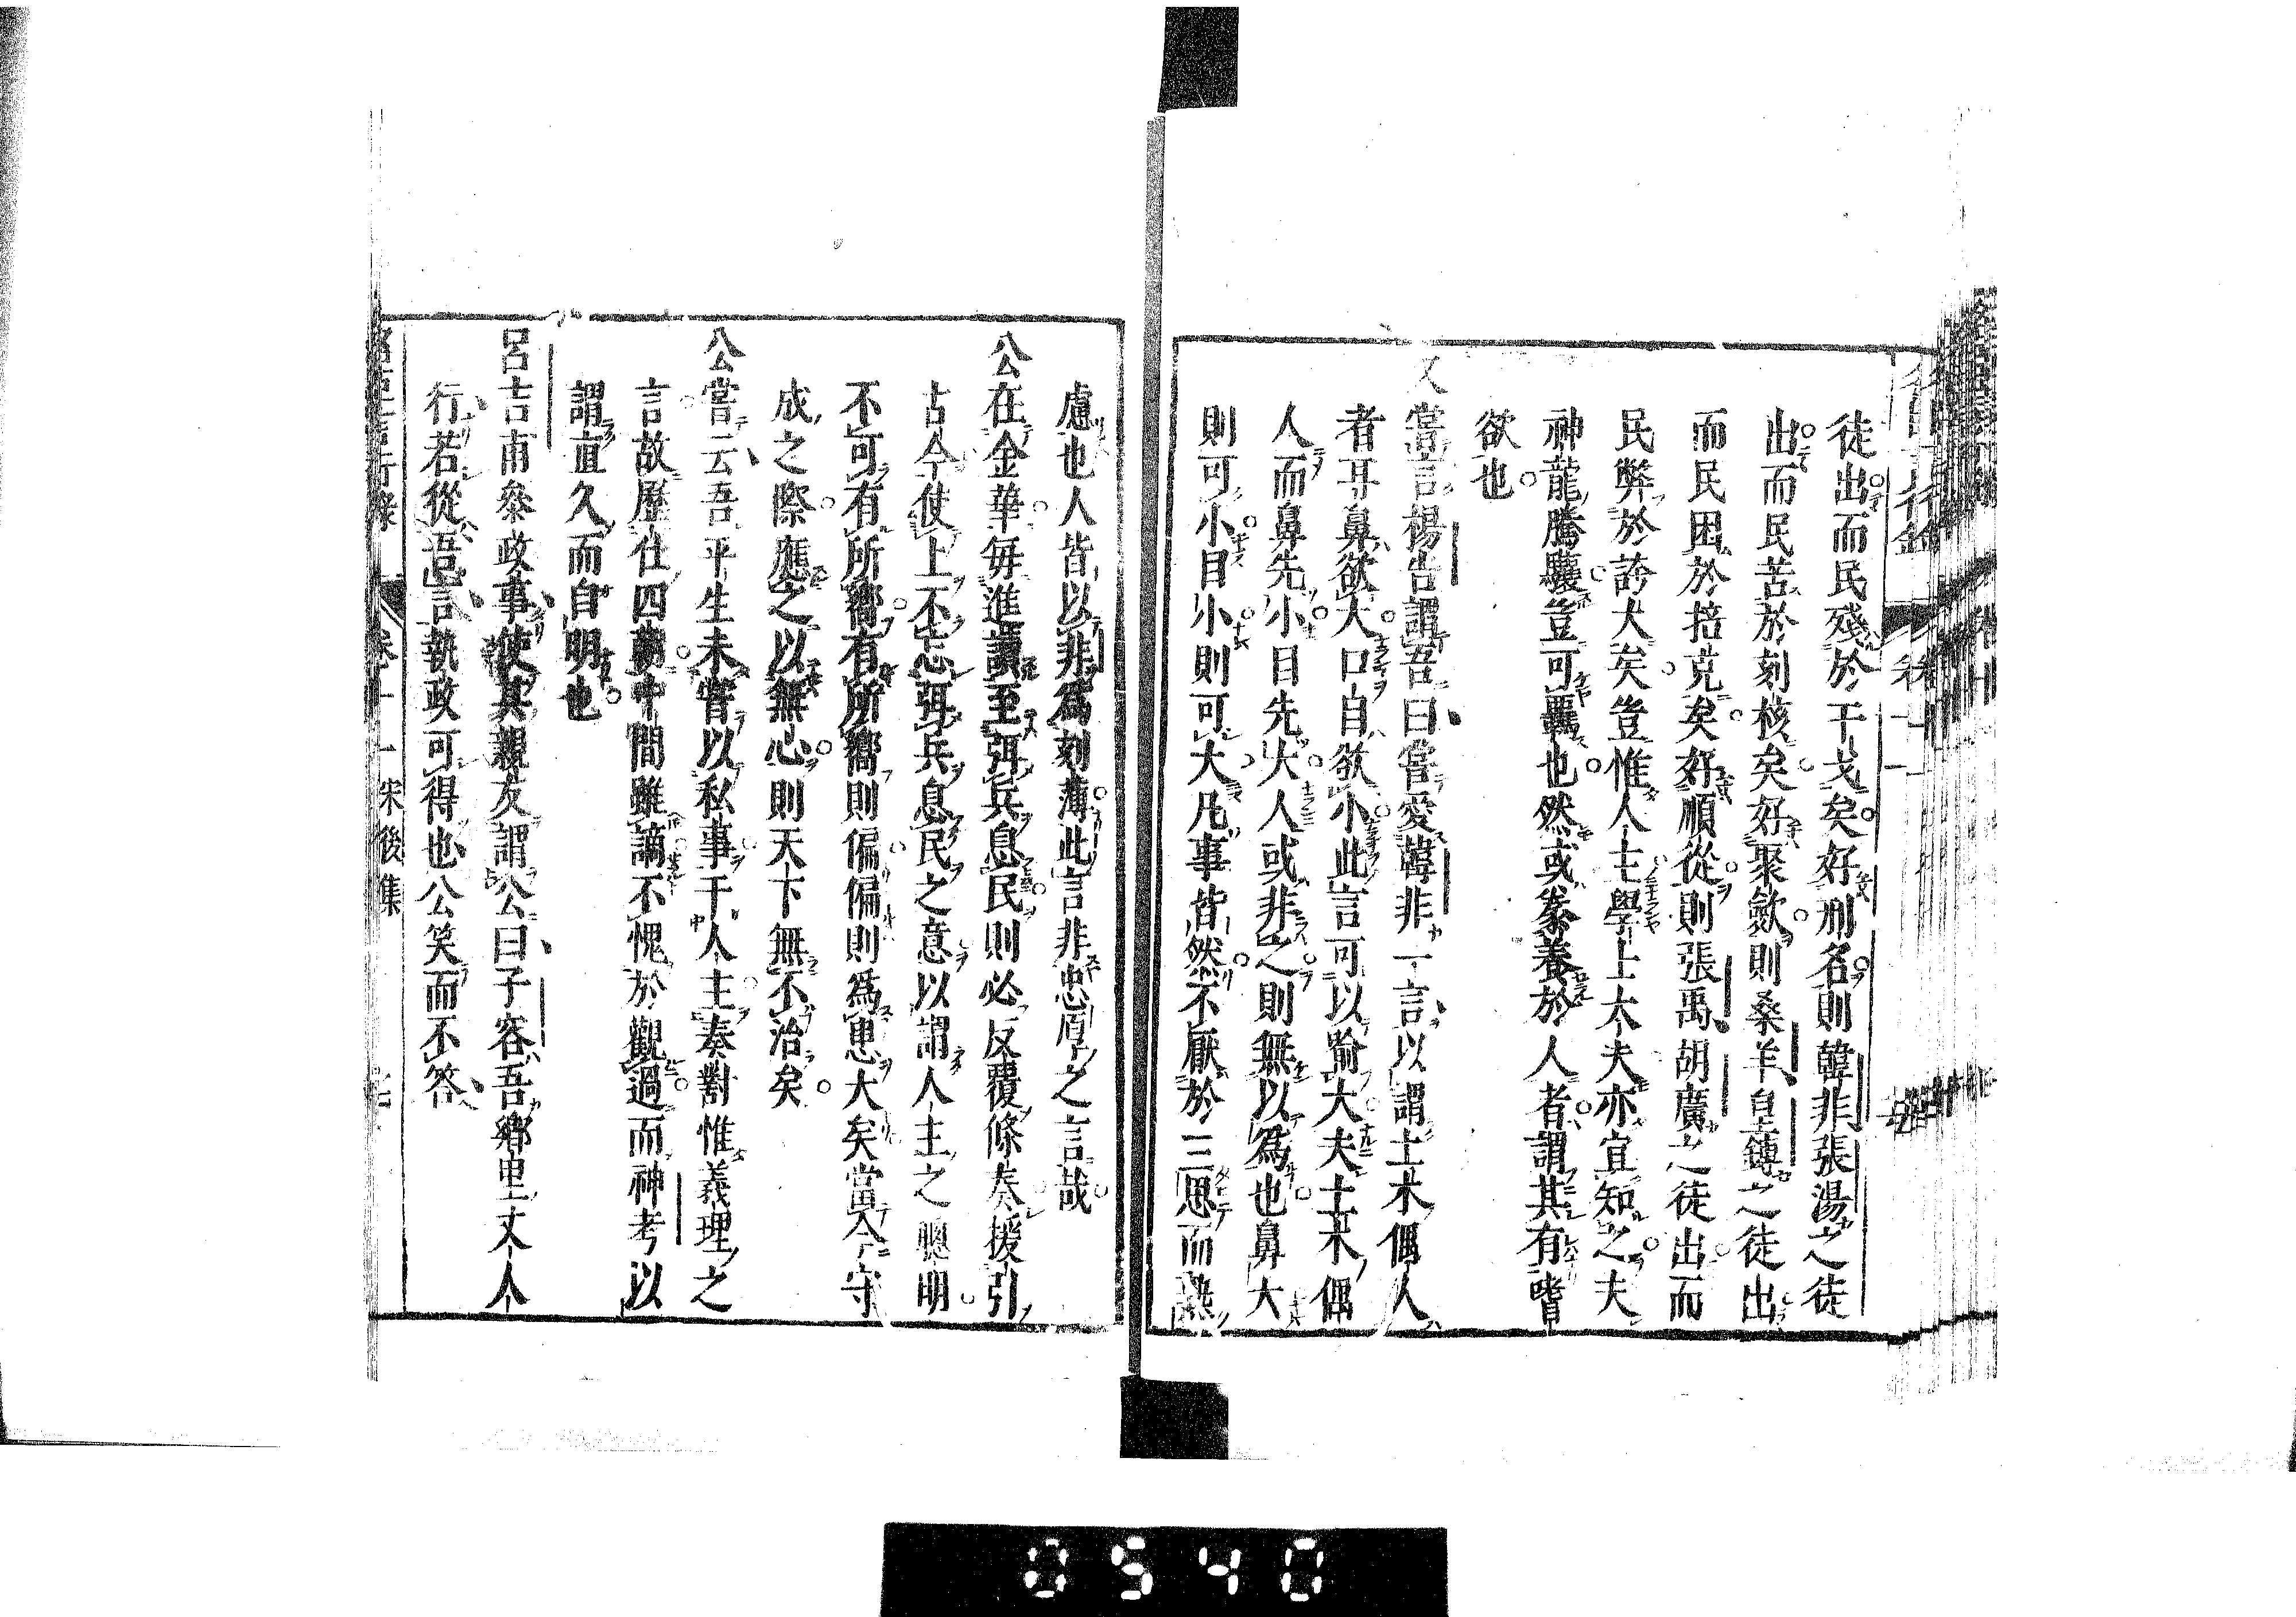 徒出而民殘於干戈矣好刑名則韓非張湯之徒
出而民苦於刻核矣好聚斂則桑羊皇鏄之徒出
而民困於掊克矣好順從則張禹胡廣之徒出而
民弊於誇大矣豈惟人士學士大夫亦宜知之夫
神龍騰驤豈可羈也然或豢養於人者謂其有嗜
欲也
又嘗言楊告謂吾曰嘗愛韓非一言以謂土木偶人
者耳鼻欲大口目欲小此言可以喻大夫士木偶
人而鼻先小目先大人或非之則無以為也鼻大
則可小目小則可大凡事皆然不厭於三思而熟
慮也人皆以非為刻薄此言非忠厚之言哉
公在金華毎進讀至弭兵息民則必反覆條奏援引
古今使上不忘弭兵息民之意以謂人主之聰明
不可有所嚮有所嚮則偏偏則為患大矣當今守
成之際應之以無心則天下無不治矣
公嘗云吾平生未甞以私事干人主奏對惟義理之
言故歷仕四朝中間雖謫不愧於觀過而神考以
謂直久而自明也
呂吉甫叅政事使其親友謂公曰子容吾鄉里丈人
行若從吾言執政可得也公笑而不答
名臣言行錄 卷十一 宋後集 七
0540